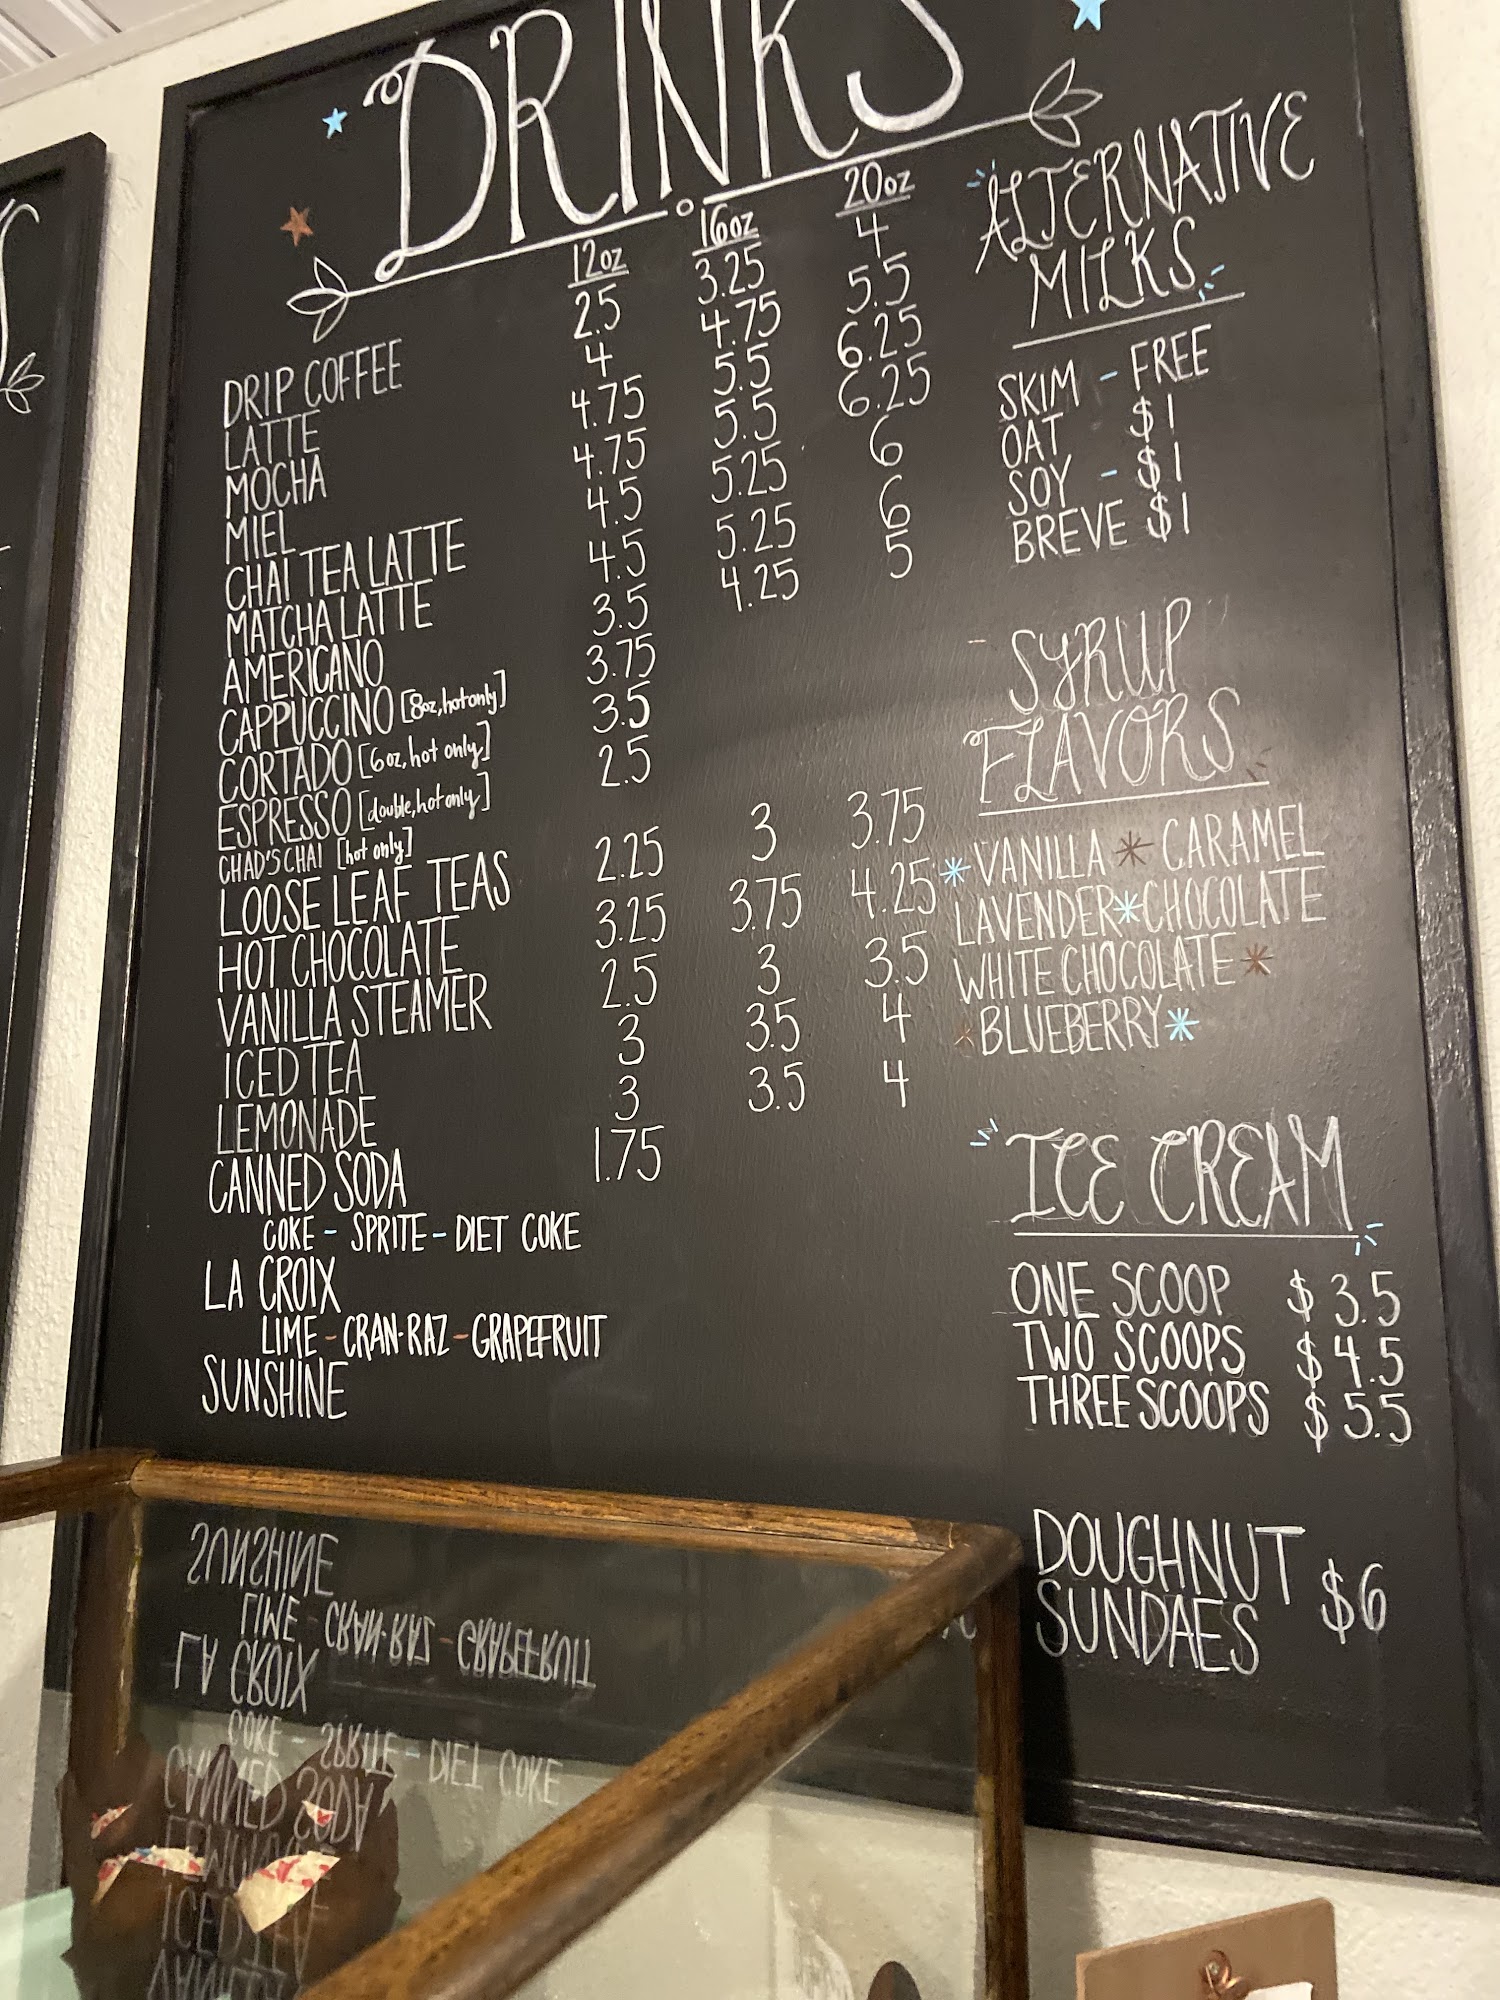 DRINKS
12oz 16oz 20oz
DRIP COFFEE 2.5 3.25 4
LATTE 4 4.75 5.5
MOCHA 4.75 5.5 6.25
MIEL 4.75 5.5 6.25
CHAI TEA LATTE 4.5 5.25 6
MATCHA LATTE 4.5 5.25 6
AMERICANO 3.5 4.25 5
CAPPUCCINO [8oz, hot only] 3.75
CORTADO [6oz, hot only] 3.5
ESPRESSO [double, hot only] 2.5
CHAD'S CHAI [hot only]
LOOSE LEAF TEAS 2.25 3 3.75
HOT CHOCOLATE 3.25 3.75 4.25
VANILLA STEAMER 2.5 3 3.5
ICED TEA 3 3.5 4
LEMONADE 3 3.5 4
CANNED SODA 1.75
COKE - SPRITE - DIET COKE
LA CROIX
LIME - CRAN-RAZ - GRAPEFRUIT
SUNSHINE
ALTERNATIVE
MILKS
SKIM - FREE
OAT $1
SOY - $1
BREVE $1
SYRUP
FLAVORS
VANILLA * CARAMEL
LAVENDER * CHOCOLATE
WHITE CHOCOLATE *
* BLUEBERRY *
ICE CREAM
ONE SCOOP $3.5
TWO SCOOPS $4.5
THREE SCOOPS $5.5
DOUGHNUT
SUNDAES $6